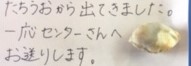 たちうおから出てきました。
一応センターさんへ
お送りします。